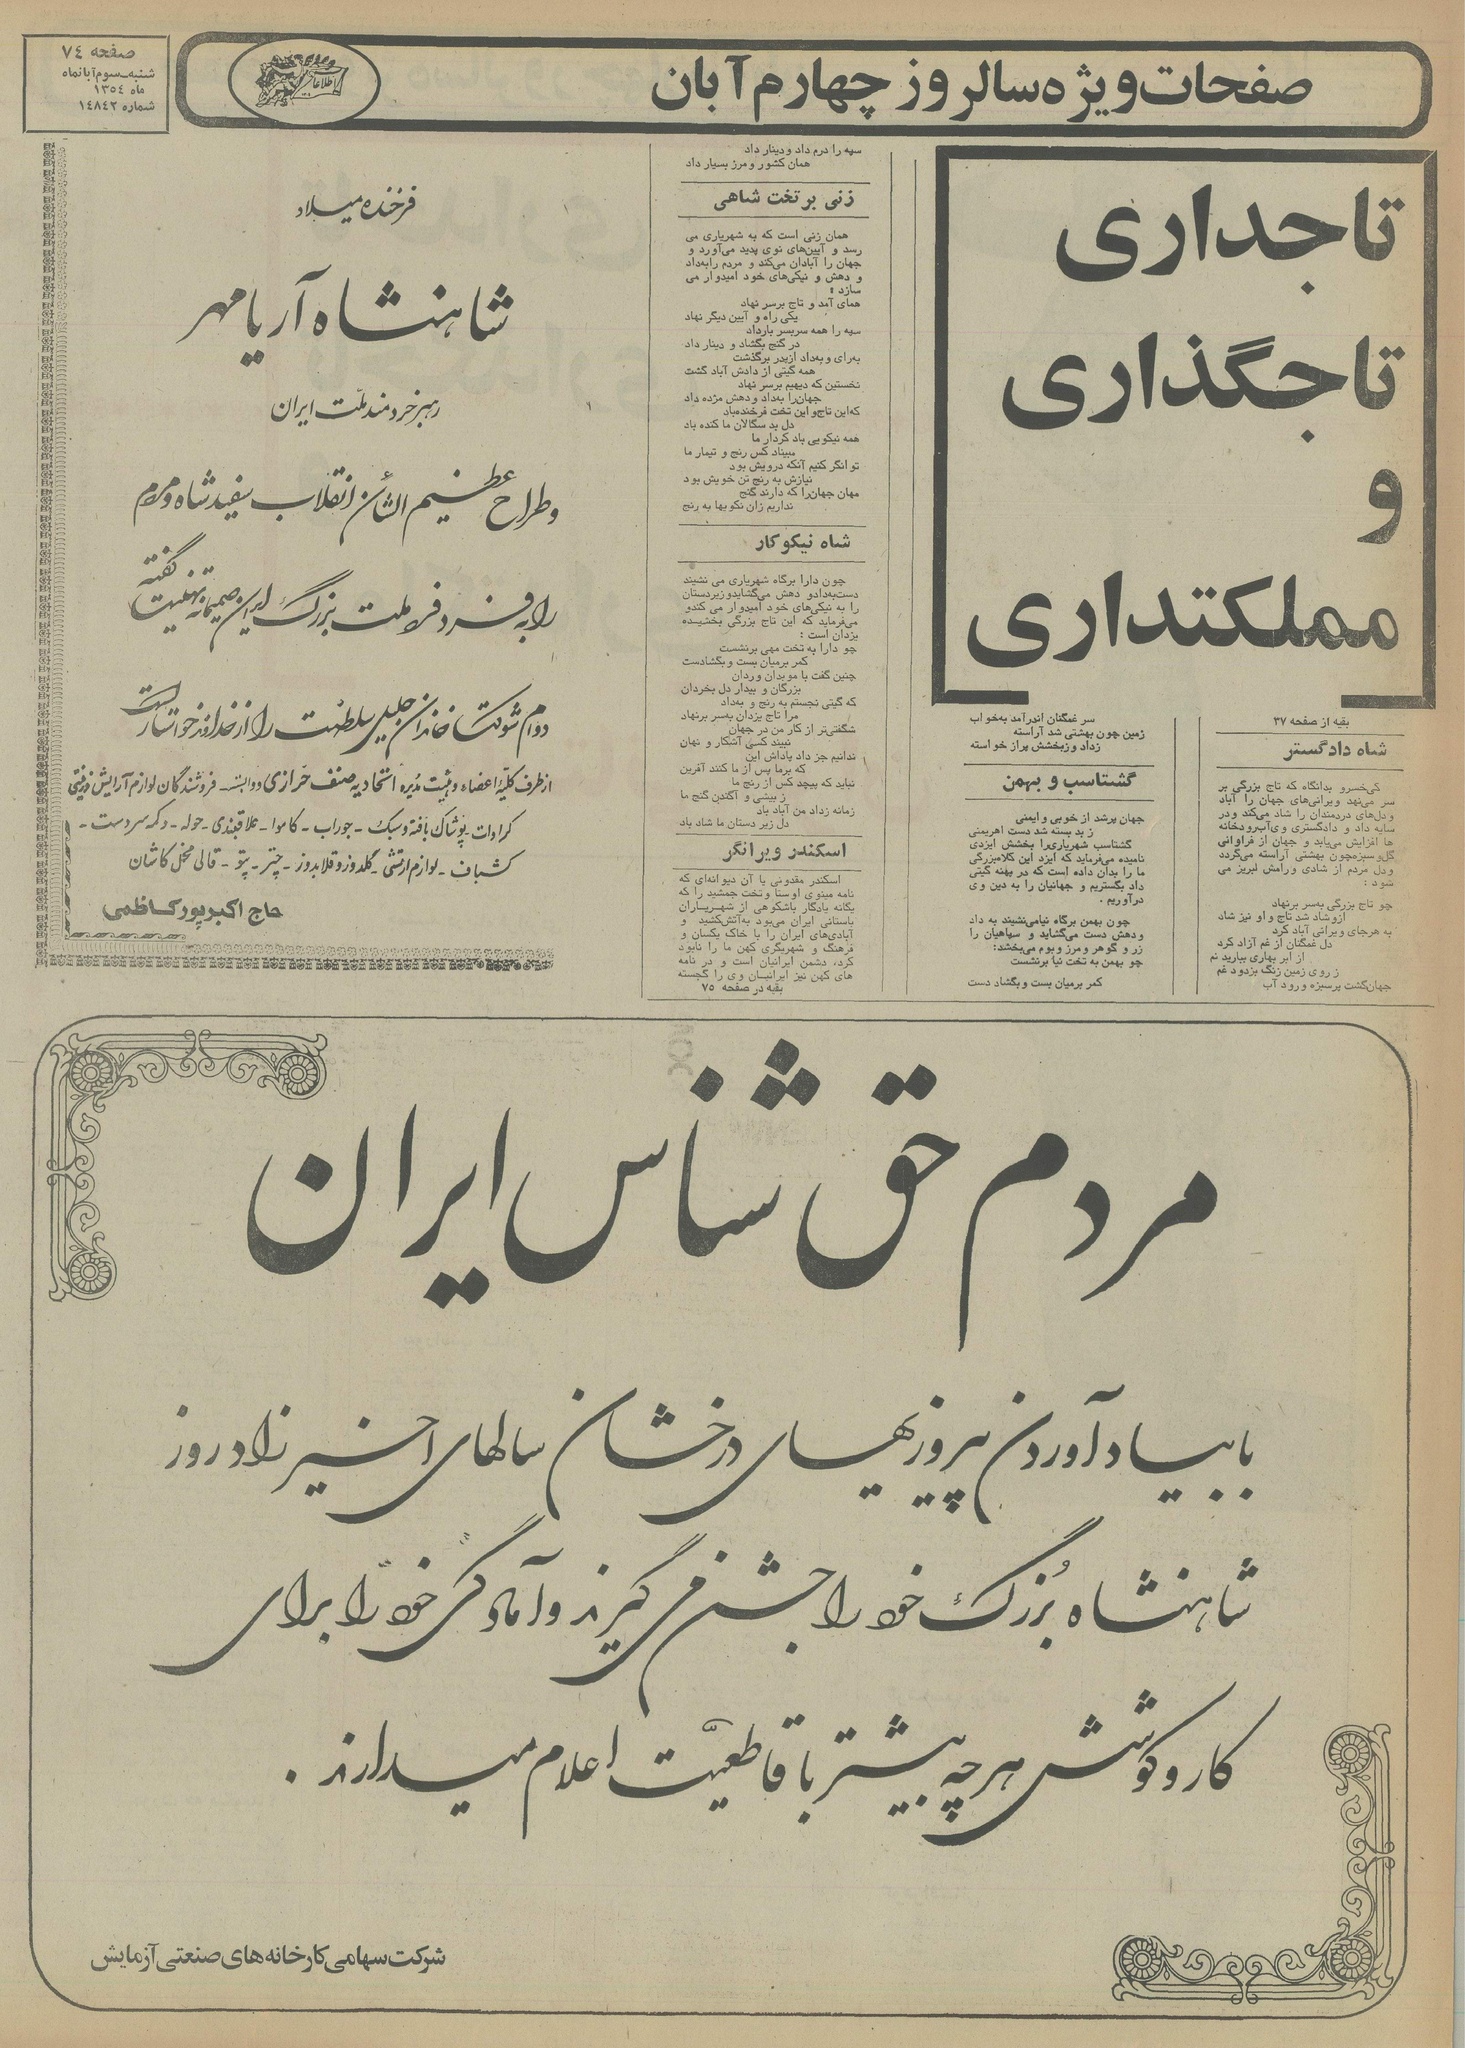 صفحه ۷٤
شنبه-سوم آبانماه
ماه ۱۳٥٤
شماره ۱٤۸٤۲
اطلاعات
صفحات ویژه سالروز چهارم آبان
تاجداری
تاجگذاری
و
مملکتداری
بقیه از صفحه ۳۷
شاه دادگستر
کیخسرو بدانگاه که تاج بزرگی بر
سر می‌نهد ویرانی‌های جهان را آباد
و دل‌های دردمندان را شاد میکند و در
سایه داد و دادگستری وی آب رودخانه
ها افزایش می‌یابد و جهان از فراوانی
گل و سبزه چون بهشتی آراسته میگردد
و دل مردم از شادی و رامش لبریز می
شود :
چو تاج بزرگی به‌سر برنهاد
ازو شاد شد تاج و او نیز شاد
به هرجای ویرانی آباد کرد
دل غمگنان از غم آزاد کرد
از ابر بهاری ببارید نم
ز روی زمین زنگ بزدود غم
جهان‌گشت پرسبزه و رود آب
سر غمگنان اندرآمد به‌خواب
زمین چون بهشتی شد آراسته
ز داد و ز بخشش پراز خواسته
گشتاسب و بهمن
جهان پرشد از خوبی و ایمنی
ز بد بسته شد دست اهریمنی
گشتاسب شهریاری را بخشش ایزدی
نامیده می‌فرماید که ایزد این کلاه‌بزرگی
ما را بدان داده است که در پهنه گیتی
داد بگستریم و جهانیان را به دین وی
درآوریم .
چون بهمن برگاه نیا می‌نشیند به داد
و دهش دست می‌گشاید و سپاهیان را
زر و گوهر و مرز و بوم می‌بخشد:
چو بهمن به تخت نیا برنشست
کمر برمیان بست و بگشاد دست
سپه را درم داد و دینار داد
همان کشور و مرز بسیار داد
زنی بر تخت شاهی
همان زنی است که به شهریاری می
رسد و آیین‌های نوی پدید می‌آورد و
جهان را آبادان می‌کند و مردم را به‌داد
و دهش و نیکی‌های خود امیدوار می
سازد :
همای آمد و تاج برسر نهاد
یکی راه و آیین دیگر نهاد
سپه را همه سربسر بارداد
در گنج بگشاد و دینار داد
به‌رای و به‌داد ازپدر برگذشت
همه گیتی از دادش آباد گشت
نخستین که دیهیم برسر نهاد
جهان‌را به‌داد و دهش مژده داد
که‌این تاج و این تخت فرخنده‌باد
دل بد سگالان ما کنده باد
همه نیکویی باد کردار ما
مبیناد کس رنج و تیمار ما
توانگر کنیم آنکه درویش بود
نیازش به رنج تن خویش بود
مهان جهان‌را که دارند گنج
نداریم زان نکوبها به رنج
شاه نیکوکار
چون دارا برگاه شهریاری می نشیند
دست‌به‌داد و دهش می‌گشاید و زیردستان
را به نیکی‌های خود امیدوار می کند و
می‌فرماید که این تاج بزرگی بخشیده
یزدان است :
چو دارا به تخت مهی برنشست
کمر برمیان بست و بگشاد دست
چنین گفت با موبدان و ردان
بزرگان و بیدار دل بخردان
که گیتی نجستم به رنج و به‌داد
مرا تاج یزدان به‌سر برنهاد
شگفتی‌تر از کار من در جهان
نبیند کسی آشکار و نهان
ندانیم جز داد پاداش این
که برما پس از ما کنند آفرین
نباید که پیچد کس از رنج ما
ز بیشی و آگندن گنج ما
زمانه زداد من آباد باد
دل زیر دستان ما شاد باد
اسکندر ویرانگر
اسکندر مقدونی یا آن دیوانه‌ای که
نامه مینوی اوستا و تخت جمشید را که
یگانه یادگار باشکوهی از شهریاران
باستانی ایران می‌بود به‌آتش‌کشید و
آبادی‌های ایران را با خاک یکسان و
فرهنگ و شهریگری کهن ما را نابود
کرد، دشمن ایرانیان است و در نامه
های کهن نیز ایرانیان وی را گجسته
بقیه در صفحه ۷٥
فرخنده میلاد
شاهنشاه آریامهر
رهبر خردمند ملت ایران
و طراح عظیم الشأن انقلاب سفید شاه و مردم
را به فرد فرد ملت بزرگ ایران صمیمانه تهنیت گفته
دوام شوکت خاندان جلیل سلطنت را از خداوند خواستار است
از طرف کلیهٔ اعضاء و هیئت مدیره اتحادیه صنف خرازی دوابسته - فروشندگان لوازم آرایش و زینتی
کراوات - پوشاک بافته و سبک - جوراب - کاموا - علاقبندی - حوله - دکمه سردست -
کشباف - لوازم ارتشی - گلدوز و قلابدوز - چتر - پتو - قالی مخمل کاشان
حاج اکبر پور کاظمی
مردم حق شناس ایران
با بیاد آوردن پیروزیهای درخشان سالهای اخیر زادروز
شاهنشاه بُزرگ خود را جشن می گیرند و آمادگی خود را برای
کار و کوشش هرچه بیشتر با قاطعیّت اعلام میدارند .
شرکت سهامی کارخانه های صنعتی آزمایش